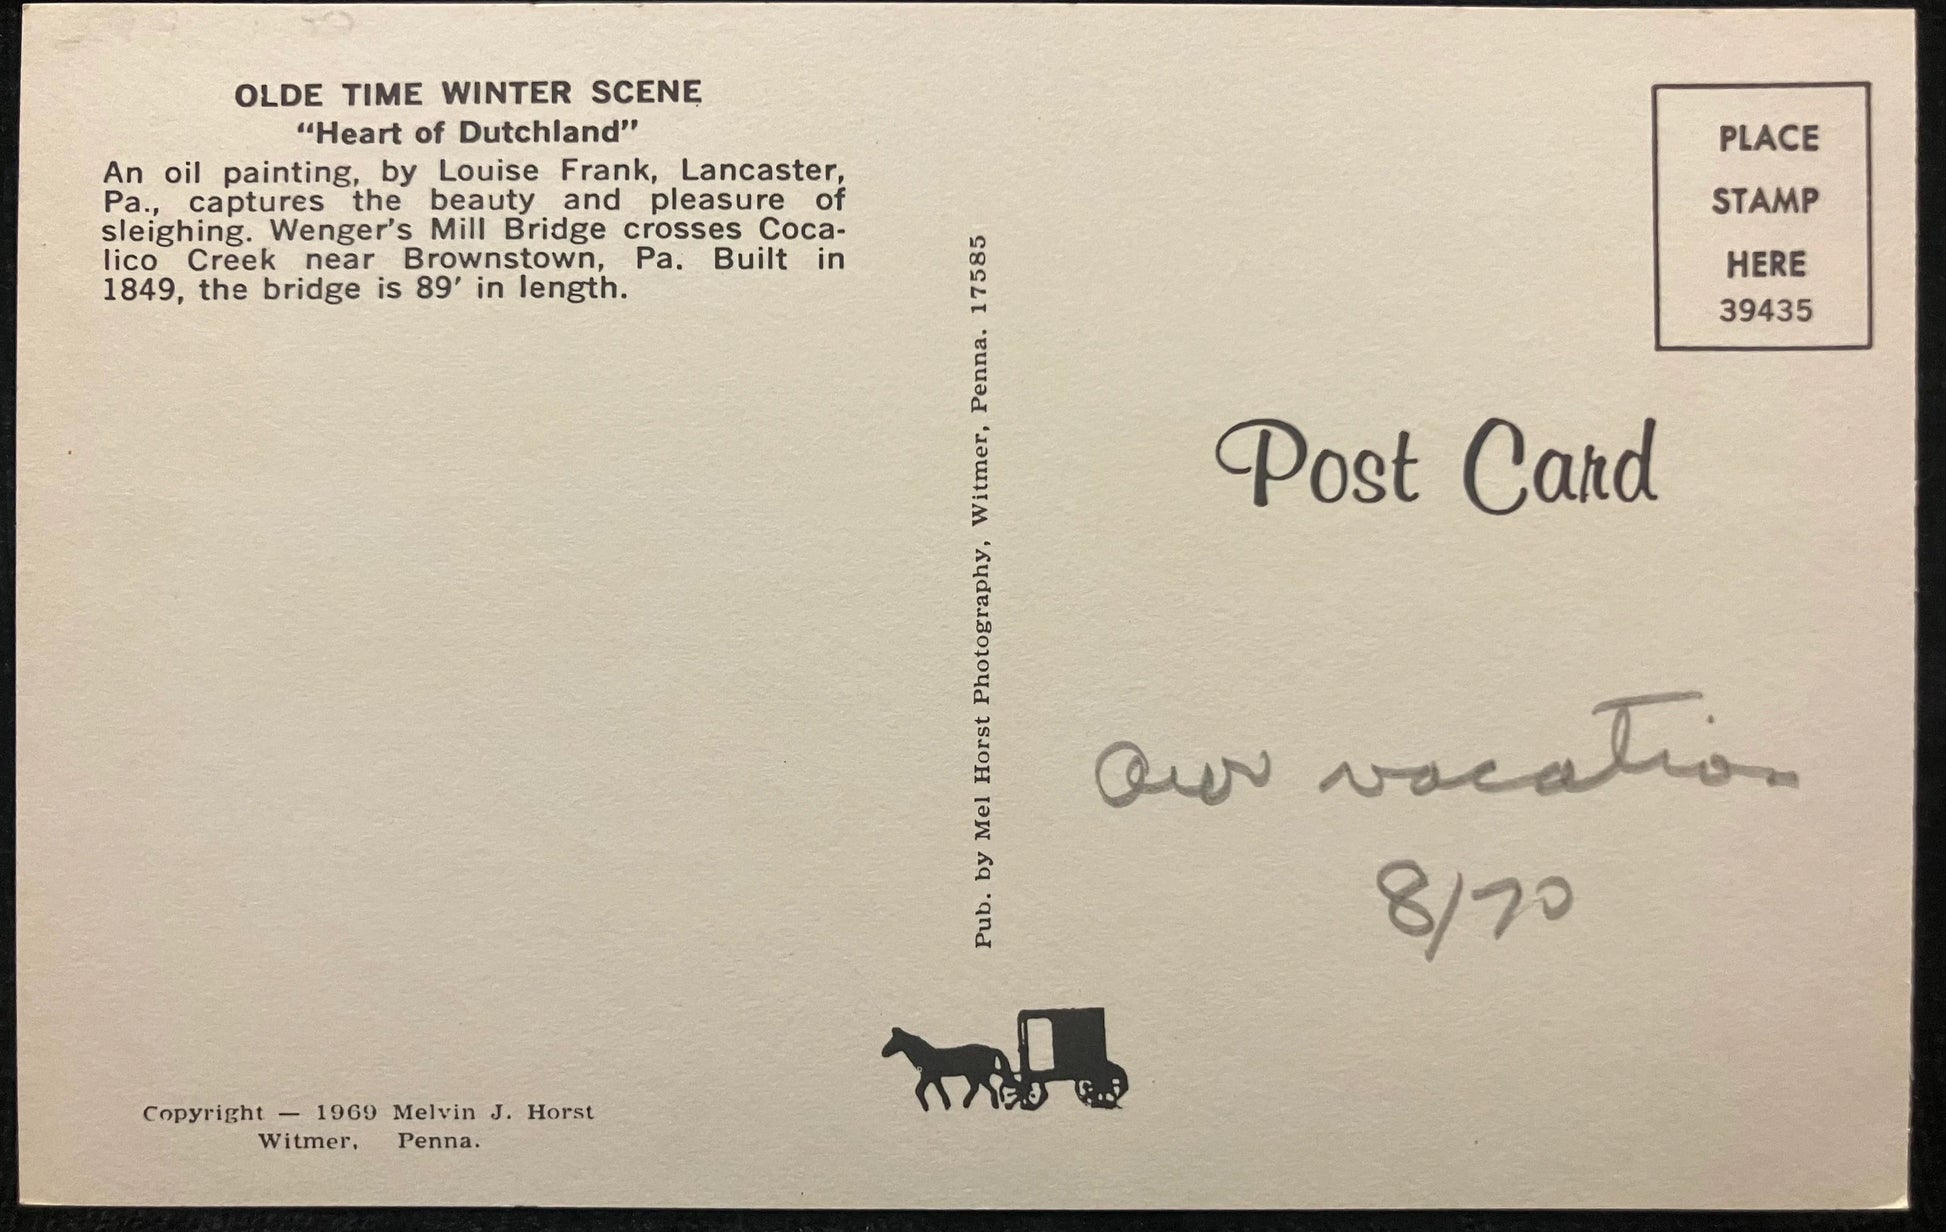 OLDE TIME WINTER SCENE
“Heart of Dutchland”
An oil painting, by Louise Frank, Lancaster,
Pa., captures the beauty and pleasure of
sleighing. Wenger’s Mill Bridge crosses Coca-
lico Creek near Brownstown, Pa. Built in
1849, the bridge is 89′ in length.
Copyright — 1969 Melvin J. Horst
Witmer, Penna.
Pub. by Mel Horst Photography, Witmer, Penna. 17585
PLACE
STAMP
HERE
39435
Post Card
Our vacation
8/70